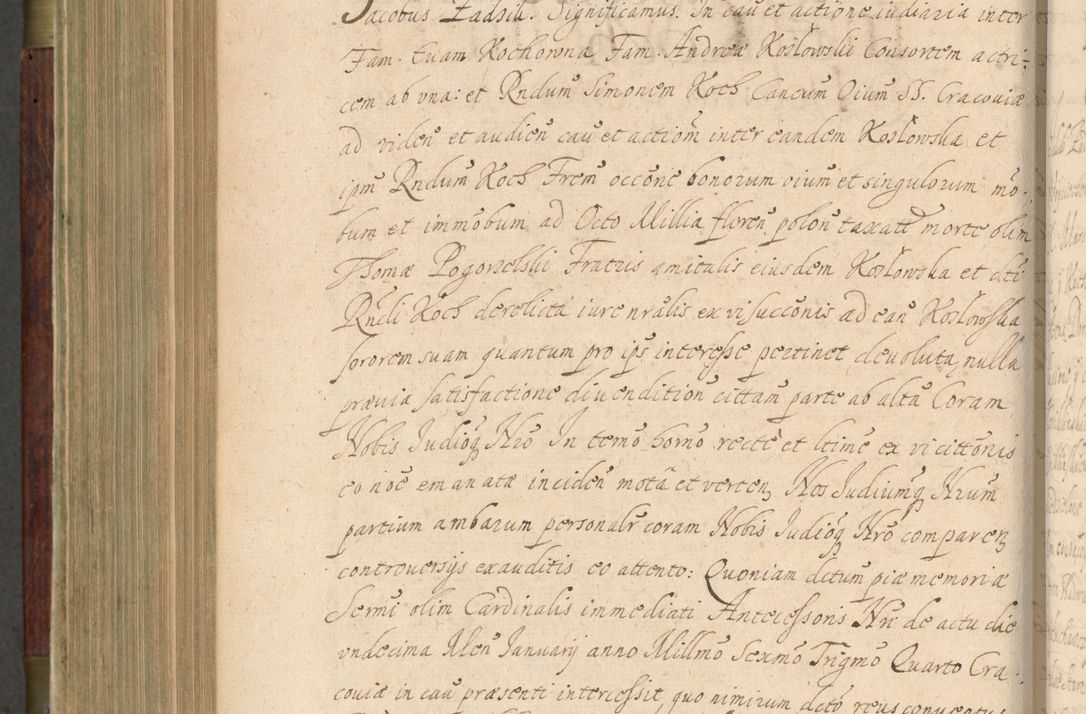 Jacobus Zadzik. Significamus. In cau et actione iudiaria inter
Fam. Euam Kochowna Fam. Andreæ Koslowskii Consortem actri-
cem ab vna: et Rndum Simonem Koch Cancum Oium SS. Cracouiæ
ad viden et audien cau et actiom inter eandem Koslowska et
ipm Rndum Koch Frem occone bonorum oium et singulorum mo-
bum et immobum ad Octo Millia floren polon taxatt morte olim
Thomæ Pogorzelskii Fratris amitalis eiusdem Koslowska et dti
Rndi Koch derelicta iure nralis ex vi succonis ad ean Koslowska
sororem suam quantum pro ips interesse pertinet deuoluta, nulla
præuia satisfactione diuendition cittam parte ab alta Coram
Nobis Judioq Nro In termo horno recte et ltime ex vi cittonis
eo noe emanatæ inciden mota et verten, Nos Judiumq Nrum
partium ambarum personalr coram Nobis Judioq Nro comparen
controuersijs exauditis eo attento: Quoniam dctum piæ memoriæ
Sermi olim Cardinalis immediati Antecessoris Nri de actu die
vndecima Men Januarij anno Millmo Sexmo Trigmo Quarto Cra-
couiæ in cau præsenti intercessit, quo nimirum dcto reus conuentus